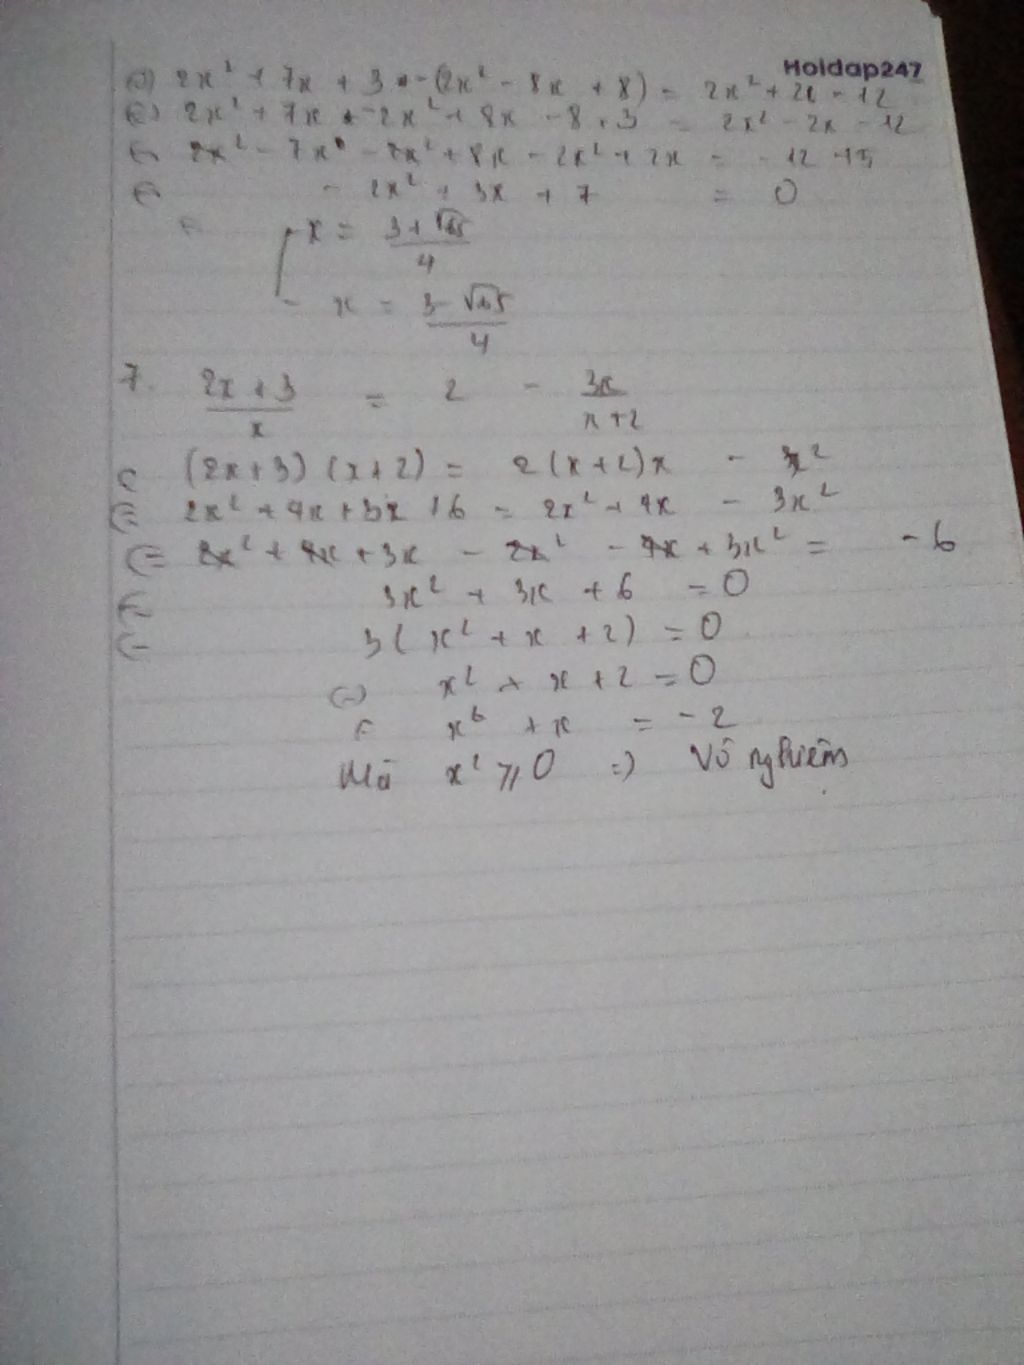 Hoidap247
2x² + 7x + 3 - (2x² - 8x + 8) = 2x² + 2x - 12
2x² + 7x - 2x² + 8x - 8 + 3 = 2x² - 2x - 12
2x² - 7x - 2x² + 8x - 2x² + 2x = -12
- 2x² + 3x + 7 = 0
x = (3 + √65)/4
x = (3 - √65)/4
7. (2x + 3)/x = 2 - 3x/(x+2)
(2x+3)(x+2) = 2(x+2)x - 3x²
2x² + 4x + 3x + 6 = 2x² + 4x - 3x²
2x² + 4x + 3x - 2x² - 4x + 3x² = -6
3x² + 3x + 6 = 0
3(x² + x + 2) = 0
x² + x + 2 = 0
x⁶ + x = -2
Mà x² ⩾ 0 => Vô nghiệm